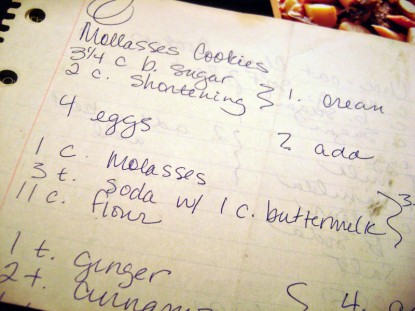 Mollasses Cookies
3 1/4 c b. sugar
2 c. shortening } 1. cream
4 eggs 2 add
1 c. Molasses
3 t. soda w/ 1 c. buttermelk } 3.
11 c. flour
1 t. ginger
2 t. 4.